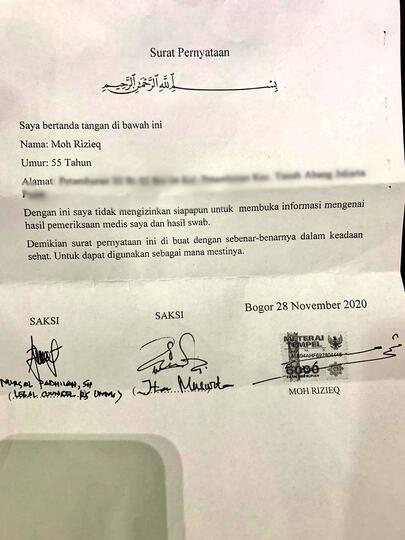 Surat Pernyataan
بِسْمِ اللَّهِ الرَّحْمَنِ الرَّحِيمِ
Saya bertanda tangan di bawah ini
Nama: Moh Rizieq
Umur: 55 Tahun
Alamat:
Dengan ini saya tidak mengizinkan siapapun untuk membuka informasi mengenai
hasil pemeriksaan medis saya dan hasil swab.
Demikian surat pernyataan ini di buat dengan sebenar-benarnya dalam keadaan
sehat. Untuk dapat digunakan sebagai mana mestinya.
Bogor 28 November 2020
SAKSI SAKSI
METERAI
TEMPEL
6000
(LEGAL OFFICER RS UMMI)
MOH RIZIEQ